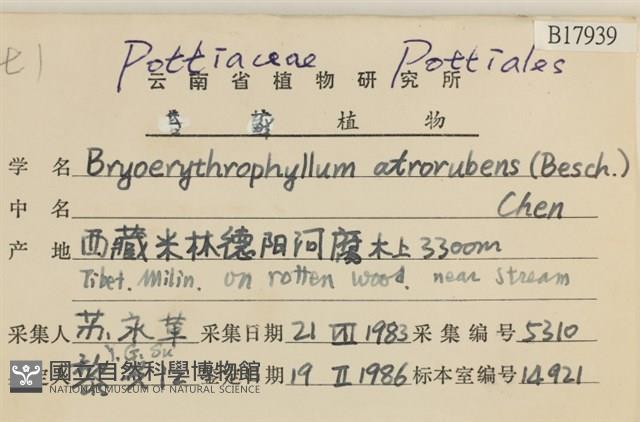 B17939
Pottiaceae Pottiales
云南省植物研究所
苔藓植物
学名 Bryoerythrophyllum atrorubens (Besch.)
中名 Chen
产地 西藏米林德阳河腐木上 3300m
Tibet. Milin. on rotten wood. near stream
采集人 苏永革 采集日期 21 VII 1983 采集编号 5310
Y. G. Su
日期 19 II 1986 标本室编号 14921
國立自然科學博物館
NATIONAL MUSEUM OF NATURAL SCIENCE